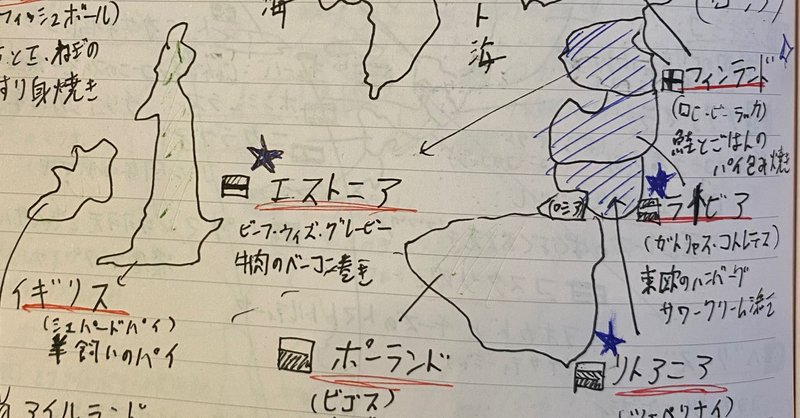 海
ト
海
(フィッシュボール)
ねぎの
すり身焼き
フィンランド
(ロヒ・ピーラッカ)
鮭とごはんの
パイ包み焼き
エストニア
ビーフ・ウィズ・グレービー
牛肉のベーコン巻き
(ロシア)
ラトビア
(ガトリャス・コトレテス)
東欧のハンバーグ
サワークリーム添え
イギリス
(シェパードパイ)
羊飼いのパイ
ポーランド
(ビゴス)
リトアニア
(ツェペリナイ)
アイルランド